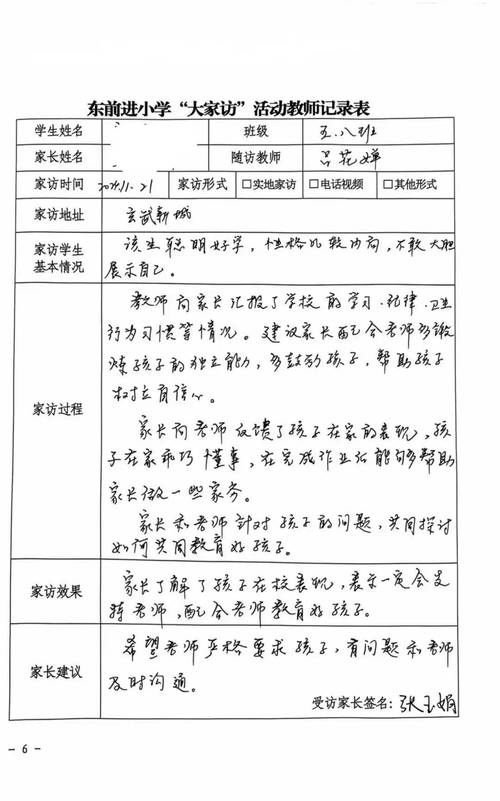 东前进小学“大家访”活动教师记录表
学生姓名 班级 五.八班
家长姓名 随访教师 吕花婵
家访时间 2024.11.21 家访形式 □实地家访 □电话视频 □其他形式
家访地址 玄武新城
家访学生基本情况 该生聪明好学，性格比较内向，不敢大胆
展示自己。
家访过程
教师向家长汇报了学校的学习.纪律.卫生
行为习惯等情况。建议家长配合老师多锻
炼孩子的独立能力，多鼓励孩子，帮助孩子
树立自信心。
家长向老师反馈了孩子在家的表现，孩
子在家乖巧懂事，在完成作业后能够帮助
家长做一些家务。
家长和老师针对孩子的问题，共同探讨
如何共同教育好孩子。
家访效果 家长了解了孩子在校表现，表示一定会支
持老师，配合老师教育好孩子。
家长建议 希望老师严格要求孩子，有问题和老师
及时沟通。
受访家长签名：张玉娟
- 6 -